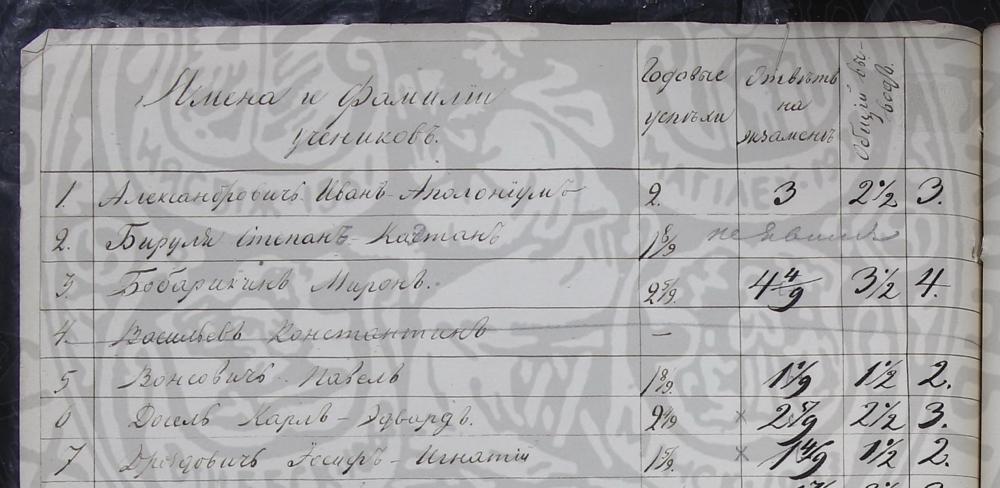 Имена и Фамиліи
учениковъ.
Годовые
успѣхи
Отвѣтъ
на
экзаменѣ
Общій вы-
водъ.
1. Александровичъ Иванъ-Аполонiумъ 2. 3 2 1/2 3.
2. Бируля Степанъ-Каэтанъ 1 8/9 не явился
3. Бобарикинъ Миронъ. 2 5/9. 4 4/9 3 1/2 4.
4. Васильевъ Константинъ —
5 Вонсовичъ Павелъ 1 8/9. 1 1/9 1 1/2 2.
6 Догель Карлъ-Эдвардъ. 2 4/9 × 2 5/9 2 1/2 3.
7 Дроздовичъ Іосифъ-Игнатій 1 5/9. × 1 4/9 1 1/2 2.